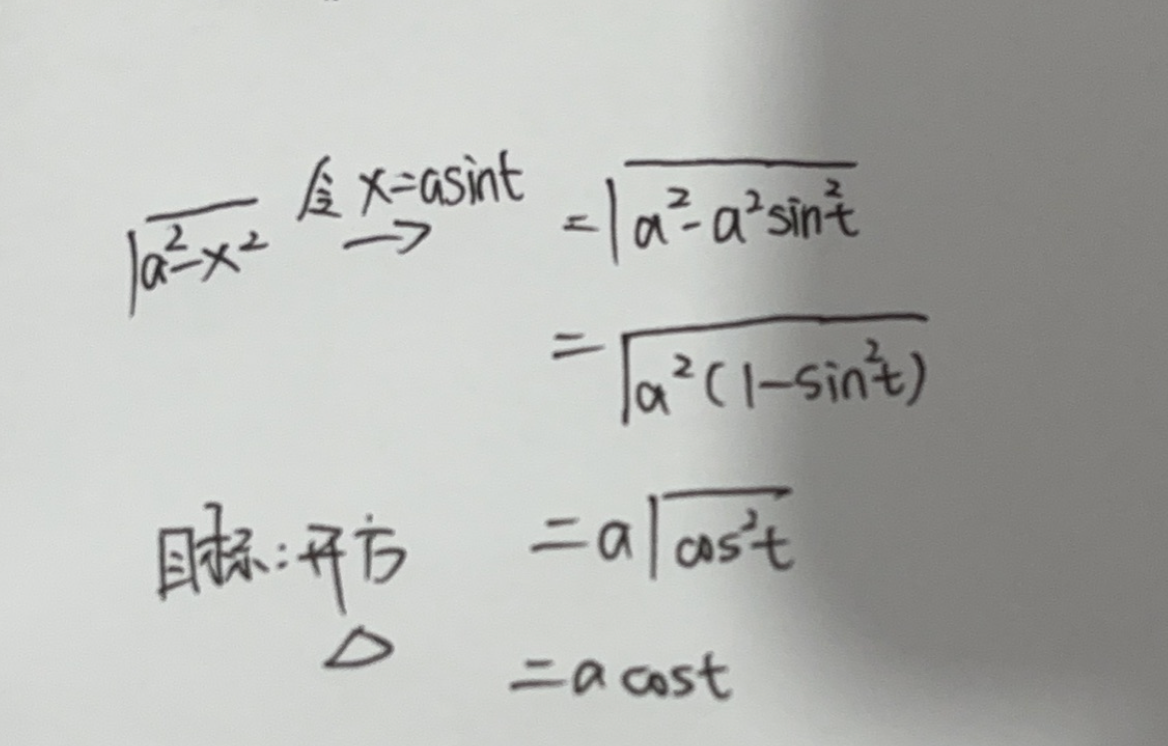 √a²-x² 令 x=asint → = √a²-a²sin²t
= √a²(1-sin²t)
目标:开方 = a√cos²t
△ = a cost